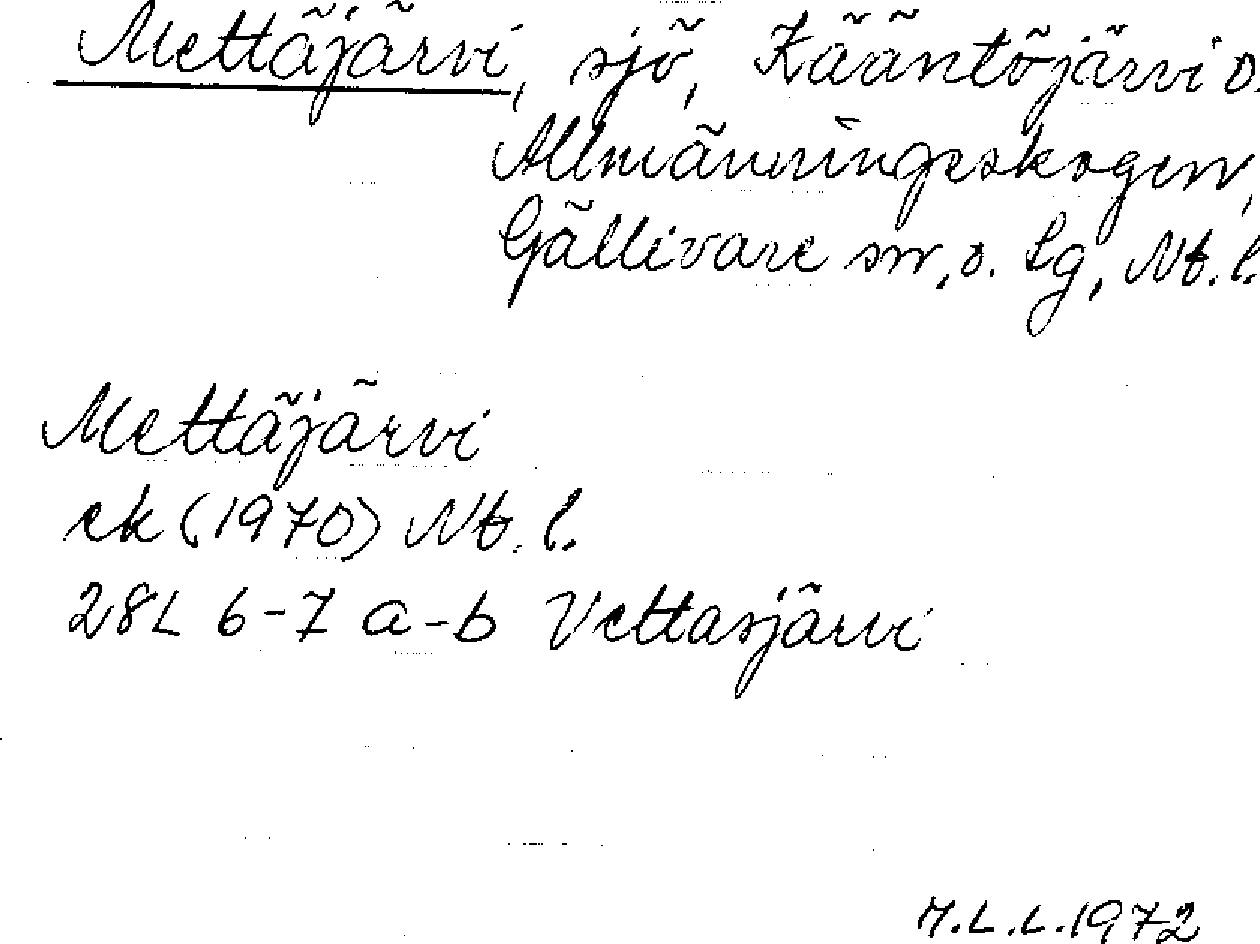 Mettäjärvi, sjö, Kääntöjärvi o.
Allmänningsskogen,
Gällivare sn, o. Lg, Nb. l.
Mettäjärvi
ek (1970) Nb. l.
28L 6-7 a-b Vettasjärvi
M.L.L. 1972